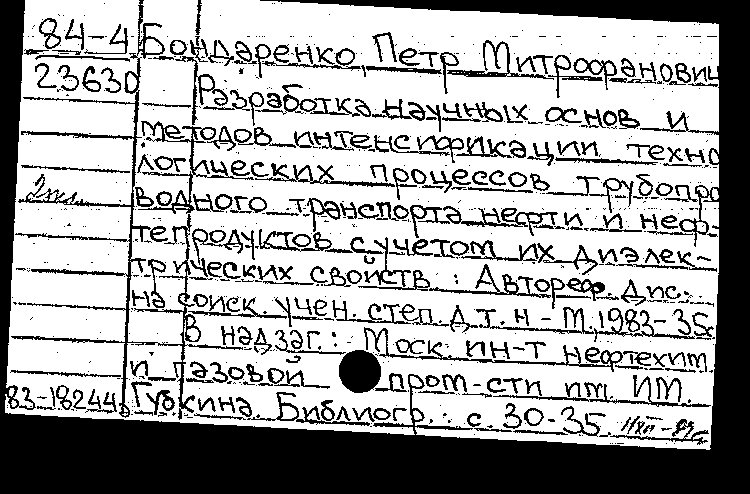 84-4 Бондаренко, Петр Митрофанович
23630 Разработка научных основ и
методов интенсификации техно
логических процессов трубопро
2 экз. водного транспорта нефти и неф-
тепродуктов с учетом их диэлек-
трических свойств : Автореф. дис.
на соиск. учен. степ. д.т.н - М., 1983-35с
В надзаг.: Моск. ин-т нефтехим.
и газовой пром-сти им. ИМ.
83-18244б Губкина. Библиогр.: с. 30-35.